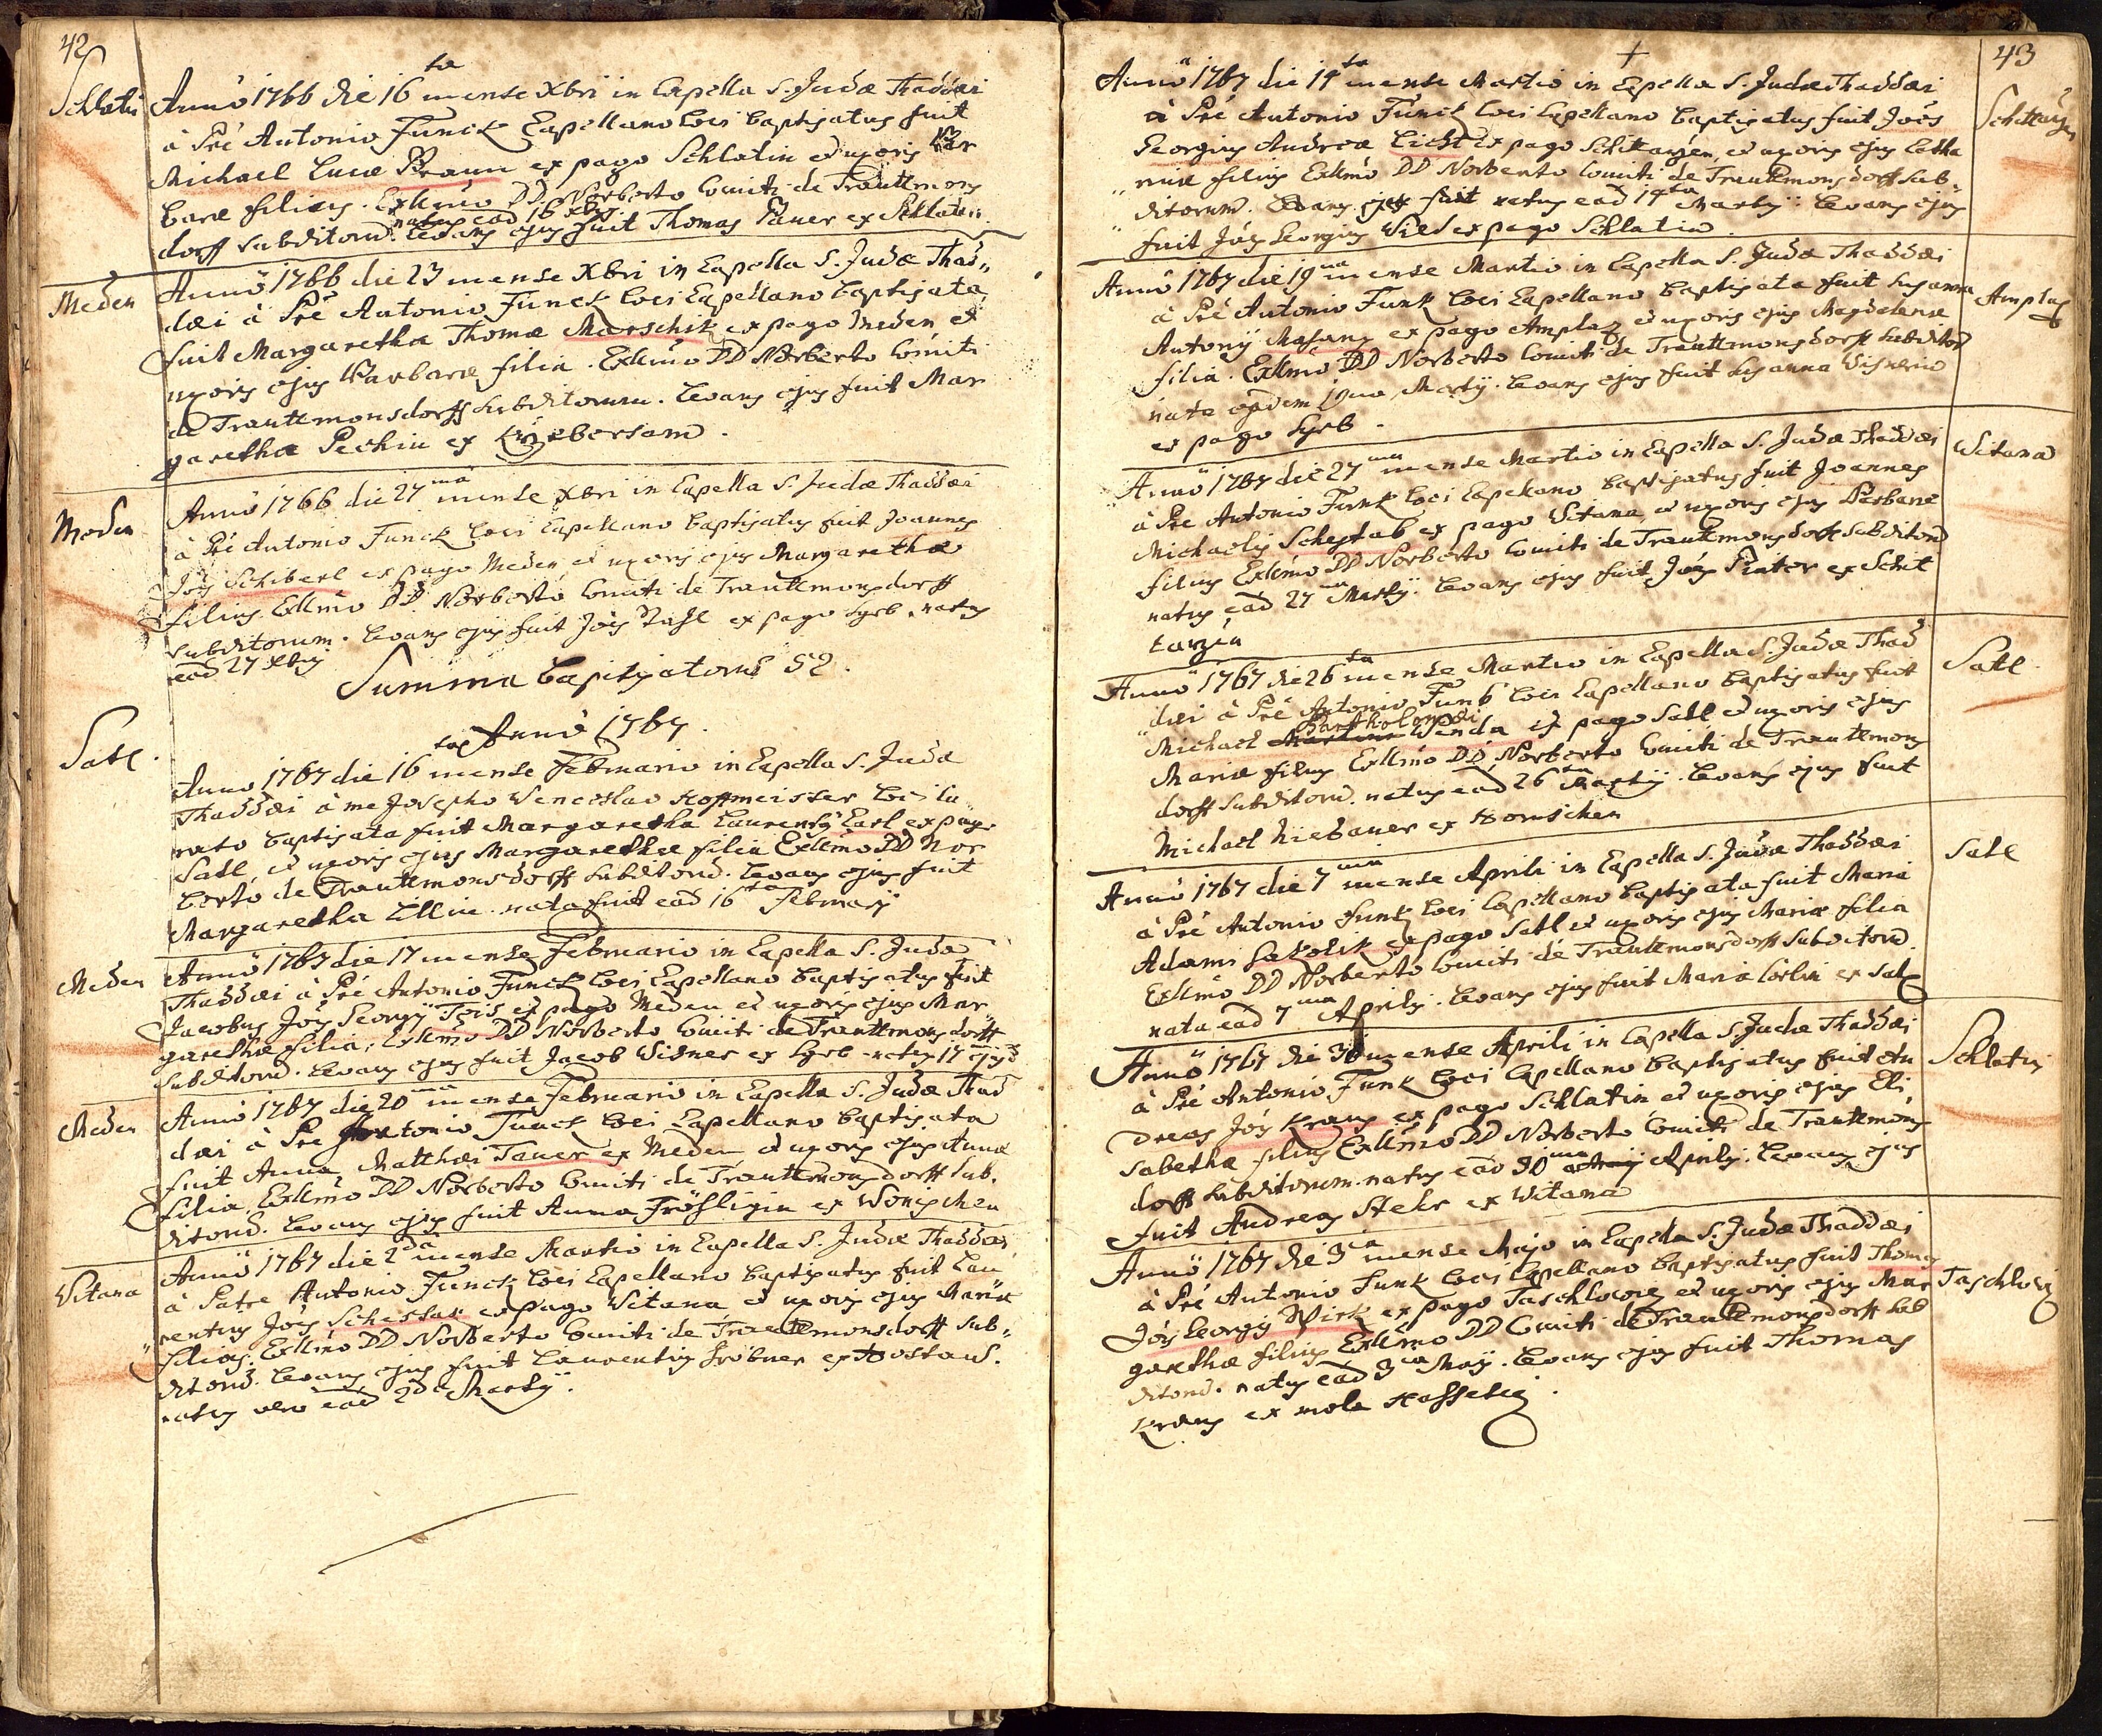 42
Schlatin
Anno 1766 die 16ta mense Xbri in Capella S. Judæ Thaddæi
à Pre Antonio Funck Loci Capellano baptizatus fuit
Michael Lucæ Braun ex pago Schlatin et uxoris Bar
baræ filius. Exllmo DD. Norberto Comiti de Trauttmons
dorff subditorum. natus ead 16 Xbris Levans ejus fuit Thomas Pauer ex Schlatin.
Meden
Anno 1766 die 23 mense Xbri in Capella S. Judæ Thad„
dæi à Pre Antonio Funck loci Capellano baptizata
fuit Margaretha Thomæ Marschik ex pago Meden et
uxoris ejus Barbaræ filia. Exllmo DD Norberto Comiti
de Trauttmonsdorff subditorum. Levans ejus fuit Mar
garetha Pechin ex
Meden
Anno 1766 die 27ma mense Xbri in Capella S. Judæ Thaddæi
à Pre Antonio Funck loci Capellano baptizatus fuit Joannes
Jois Schiberl ex pago Meden et uxoris ejus Margarethæ
filius Exllmo DD. Norberto Comiti de Trauttmonsdorff
subditorum. Levans ejus fuit Jois ex pago Syrb. natus
ead 27 Xbris
Summa baptizatorum 52.
Anno 1767.
Satl.
Anno 1767 die 16ta mense Februario in Capella S. Judæ
Thaddæi à me Josepho Wenceslao Hoffmeister Loci Cu
rato baptizata fuit Margaretha Laurentÿ Earl ex pago
Satl, et uxoris ejus Margarethæ filia Exllmo DD Nor
berto de Trauttmonsdorff subditorum. Levans ejus fuit
Margaretha Lillin. nata fuit ead 16ta Februarÿ
Meden
Anno 1767 die 17 mense Februario in Capella S. Judæ
Thaddæi à Pre Antonio Funck loci Capellano baptizatus fuit
Jacobus Jois Georgÿ ex pago Meden et uxoris ejus Mar
garethæ filia, Exllmo DD Norberto Comiti de Trauttmonsdorff
subditorum. Levans ejus fuit Jacob Widner ex Syrb natus 17 ejusd
Meden
Anno 1767 die 20ma mense Februario in Capella S. Judæ Thad
dæi à Pre Antonio Funck loci Capellano baptizata
fuit Anna Matthæi Tauer ex Meden et uxoris ejus Annæ
filia. Exllmo DD Norberto Comiti de Trauttmonsdorff sub.
ditorum. Levans ejus fuit Anna Fröhligin ex Wonischen
Witana
Anno 1767 die 2da mense Martio in Capella S. Judæ Thaddæi
à Patre Antonio Funck loci Capellano baptizatus fuit Lau
rentius Jois Schestak ex pago Witana et uxoris ejus Mariæ
filius. Exllmo DD Norberto Comiti de Trauttmonsdorff sub„
ditorum. Levans ejus fuit Laurentius Gröbner ex Hostaus.
natus vero ead 2da Martÿ.
43
Schittarzen
Anno 1767 die 14ta mense Martio in Capella S. Judæ Thaddæi
à Pre Antonio Funck loci Capellano baptizatus fuit Joës
Georgius Andreæ Licht ex pago Schittarzen, et uxoris ejus Catha
rinæ filius Exllmo DD Norberto Comiti de Trauttmonsdorff sub„
ditorum. Levans ejus fuit natus ead 14ta Martÿ. Levans ejus
fuit Jois Georgius Wild ex pago Schlatin.
Amplaz
Anno 1767 die 19na mense Martio in Capella S. Judæ Thaddæi
à Pre Antonio Funk loci Capellano baptizata fuit Susanna
Antonÿ ex pago Amplaz et uxoris ejus Magdalenæ
filia. Exllmo DD Norberto Comiti de Trauttmonsdorff subditorum
nata eadem 19na Martÿ. Levans ejus fuit Susanna Wisnerin
ex pago Syrb.
Witana
Anno 1767 die 27ma mense Martio in Capella S. Judæ Thaddæi
à Pre Antonio Funk loci Capellano baptizatus fuit Joannes
Michaelis Schestak ex pago Witana, et uxoris ejus Barbaræ
filius Exllmo DD Norberto Comiti de Trauttmonsdorff subditorum
natus ead 27ma Martÿ. Levans ejus fuit Jois Pinter ex Schit
tarzen
Satl.
Anno 1767 die 26ta mense Martio in Capella S. Judæ Thad
dæi à Pre Antonio Funk loci Capellano baptizatus fuit
Michael Bartholomæi Wenda ex pago Satl et uxoris ejus
Mariæ filius Exllmo DD Norberto Comiti de Trauttmons
dorff subditorum. natus ead 26ta Martÿ. Levans ejus fuit
Michael Niebauer ex Wonischen
Satl
Anno 1767 die 7ma mense Aprili in Capella S. Judæ Thaddæi
à Pre Antonio Funk loci Capellano baptizata fuit Maria
Adami ex pago Satl et uxoris ejus Mariæ filia
Exllmo DD Norberto Comiti de Trauttmonsdorff subditorum
nata ead 7ma Aprilis. Levans ejus fuit Maria Cörlin ex Satl
Schlatin
Anno 1767 die 30 mense Aprili in Capella S. Judæ Thaddæi
à Pre Antonio Funk loci Capellano baptizatus fuit An
dreas Jois Kraus ex pago Schlatin et uxoris ejus Eli„
sabethæ filius Exllmo DD Norberto Comiti de Trauttmons
dorff subditorum. natus ead 30ma Aprilis. Levans ejus
fuit Andreas Stehr ex Witana
Taschlowiz
Anno 1767 die 3ia mense Majo in Capella S. Judæ Thaddæi
à Pre Antonio Funk loci Capellano baptizatus fuit Thomas
Jois Georgÿ Wirk ex pago Taschlowiz et uxoris ejus Mar
garethæ filius Exllmo DD Comiti de Trauttmonsdorff sub
ditorum. natus ead 3ia Maÿ. Levans ejus fuit Thomas
Kraus ex mola Hassetiz.